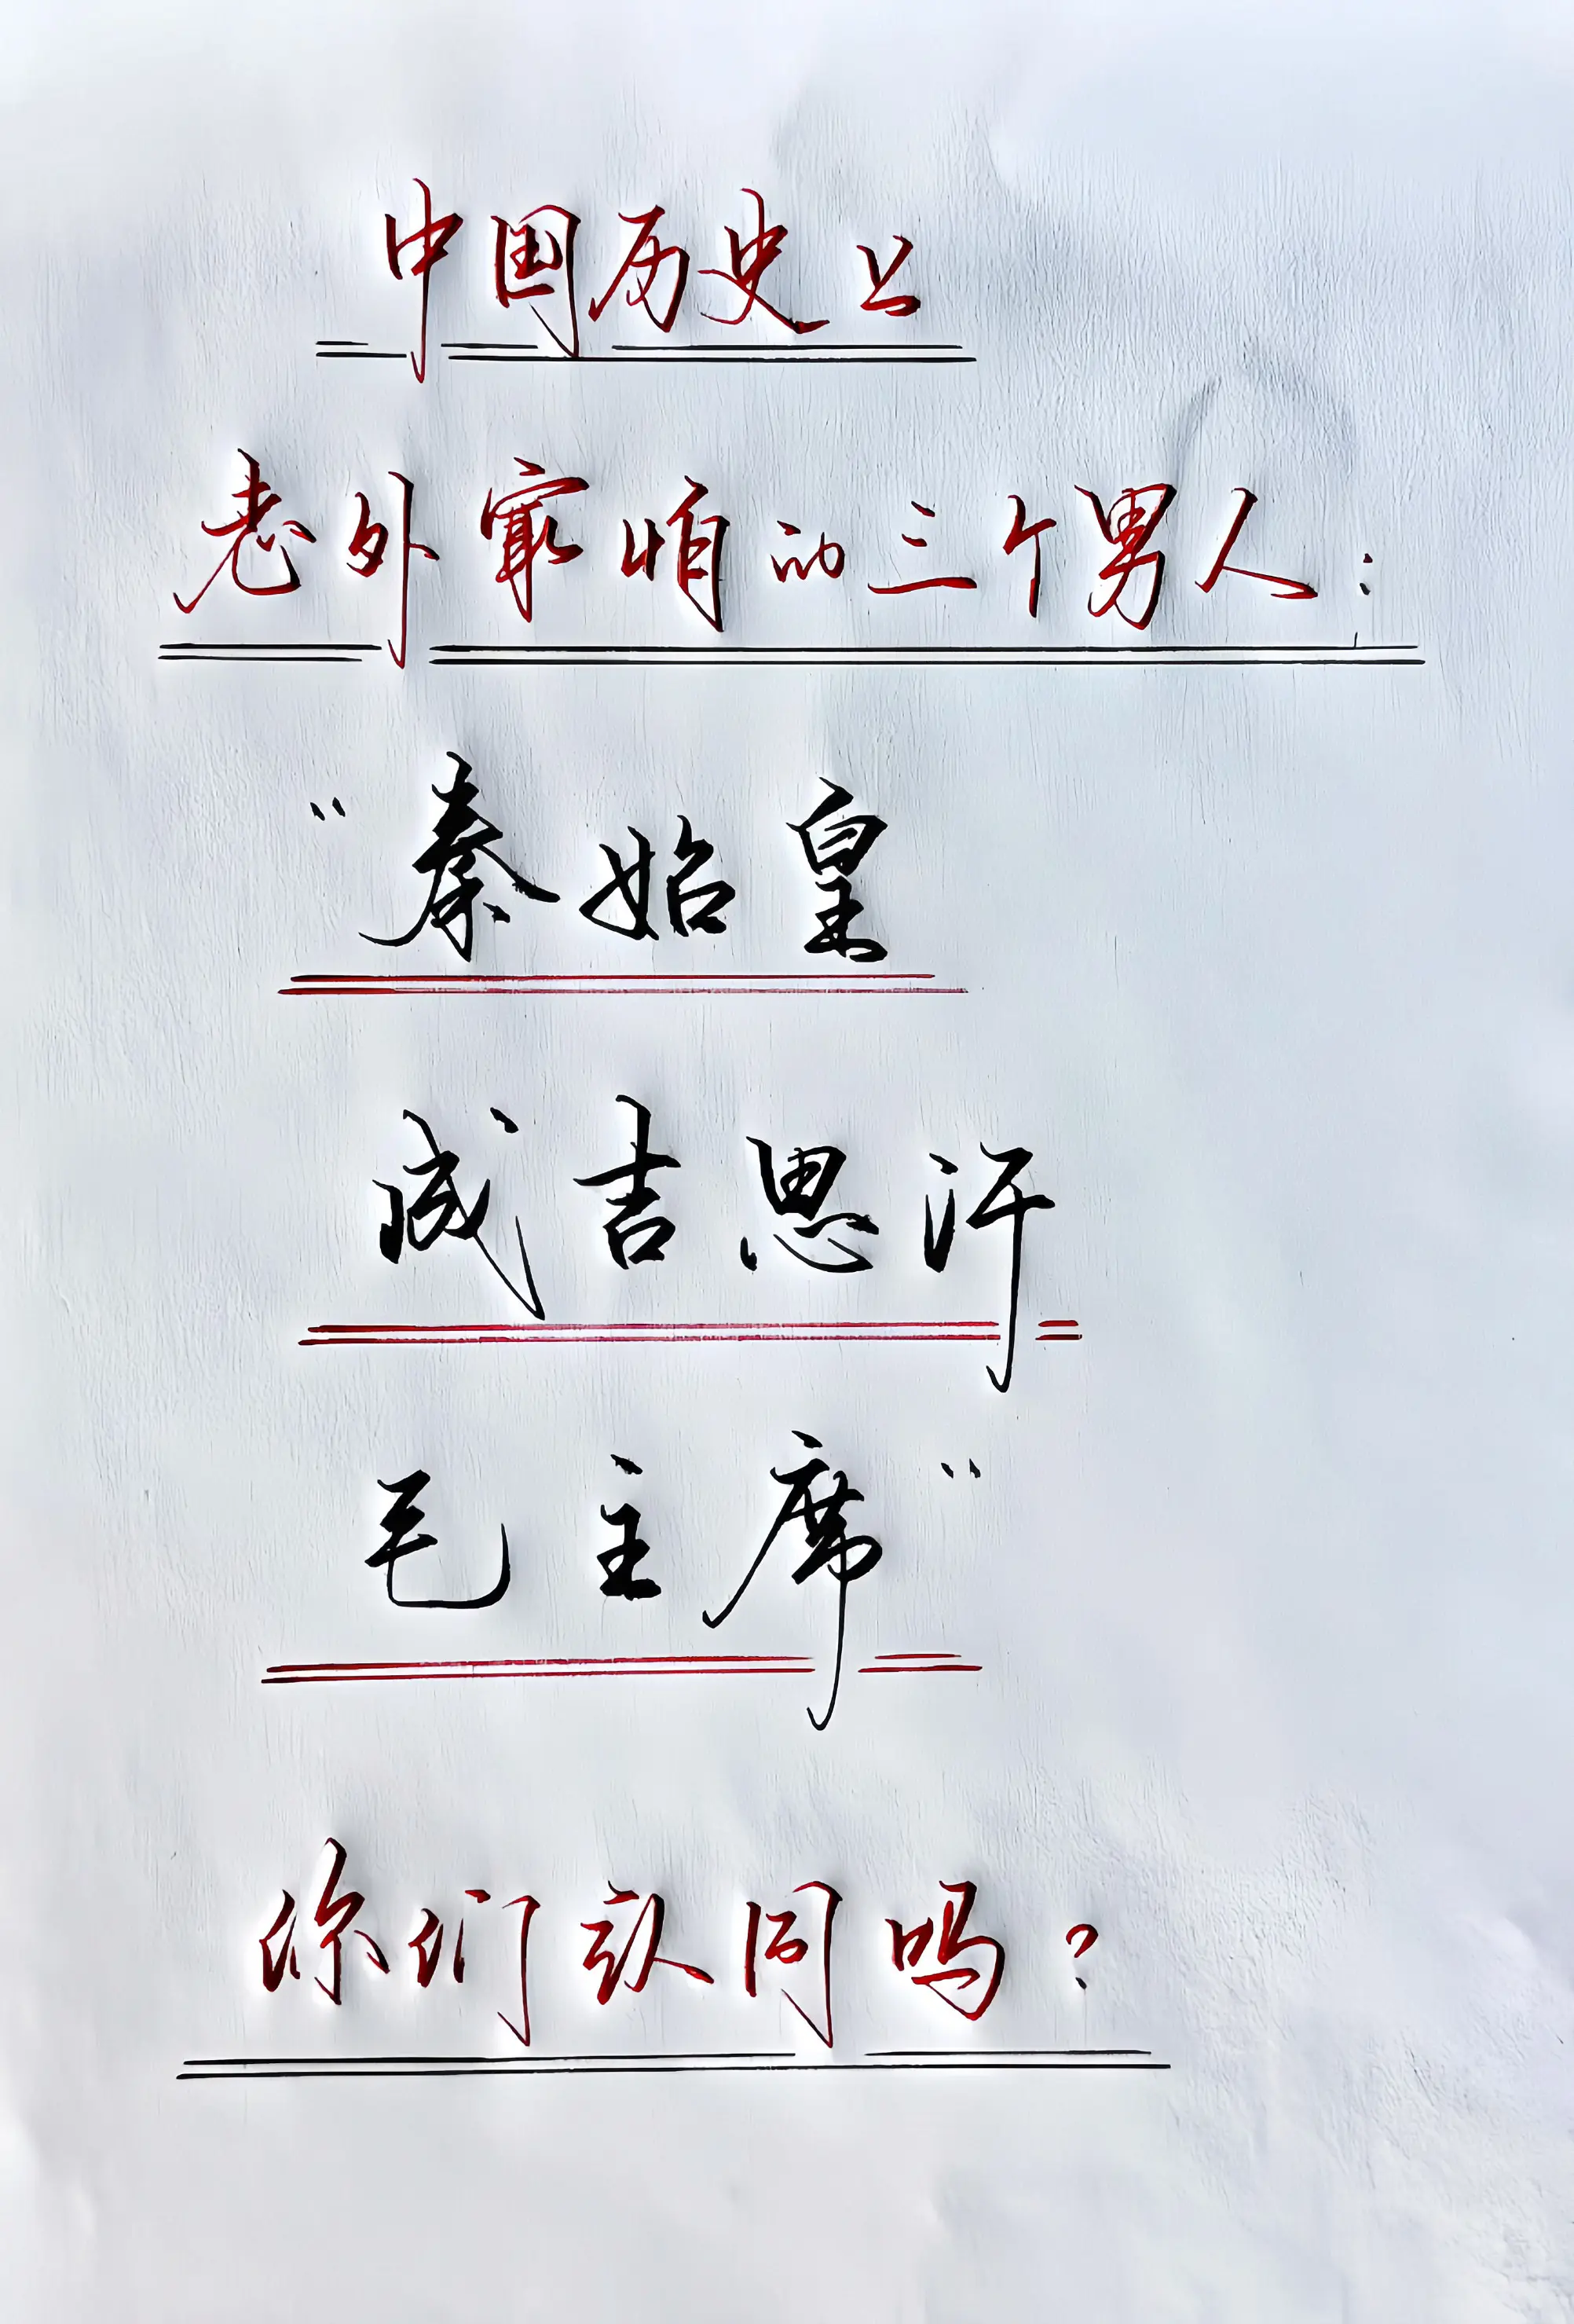 中国历史上
老外最怕的三个男人：
“秦始皇
成吉思汗
毛主席”
你们认同吗？